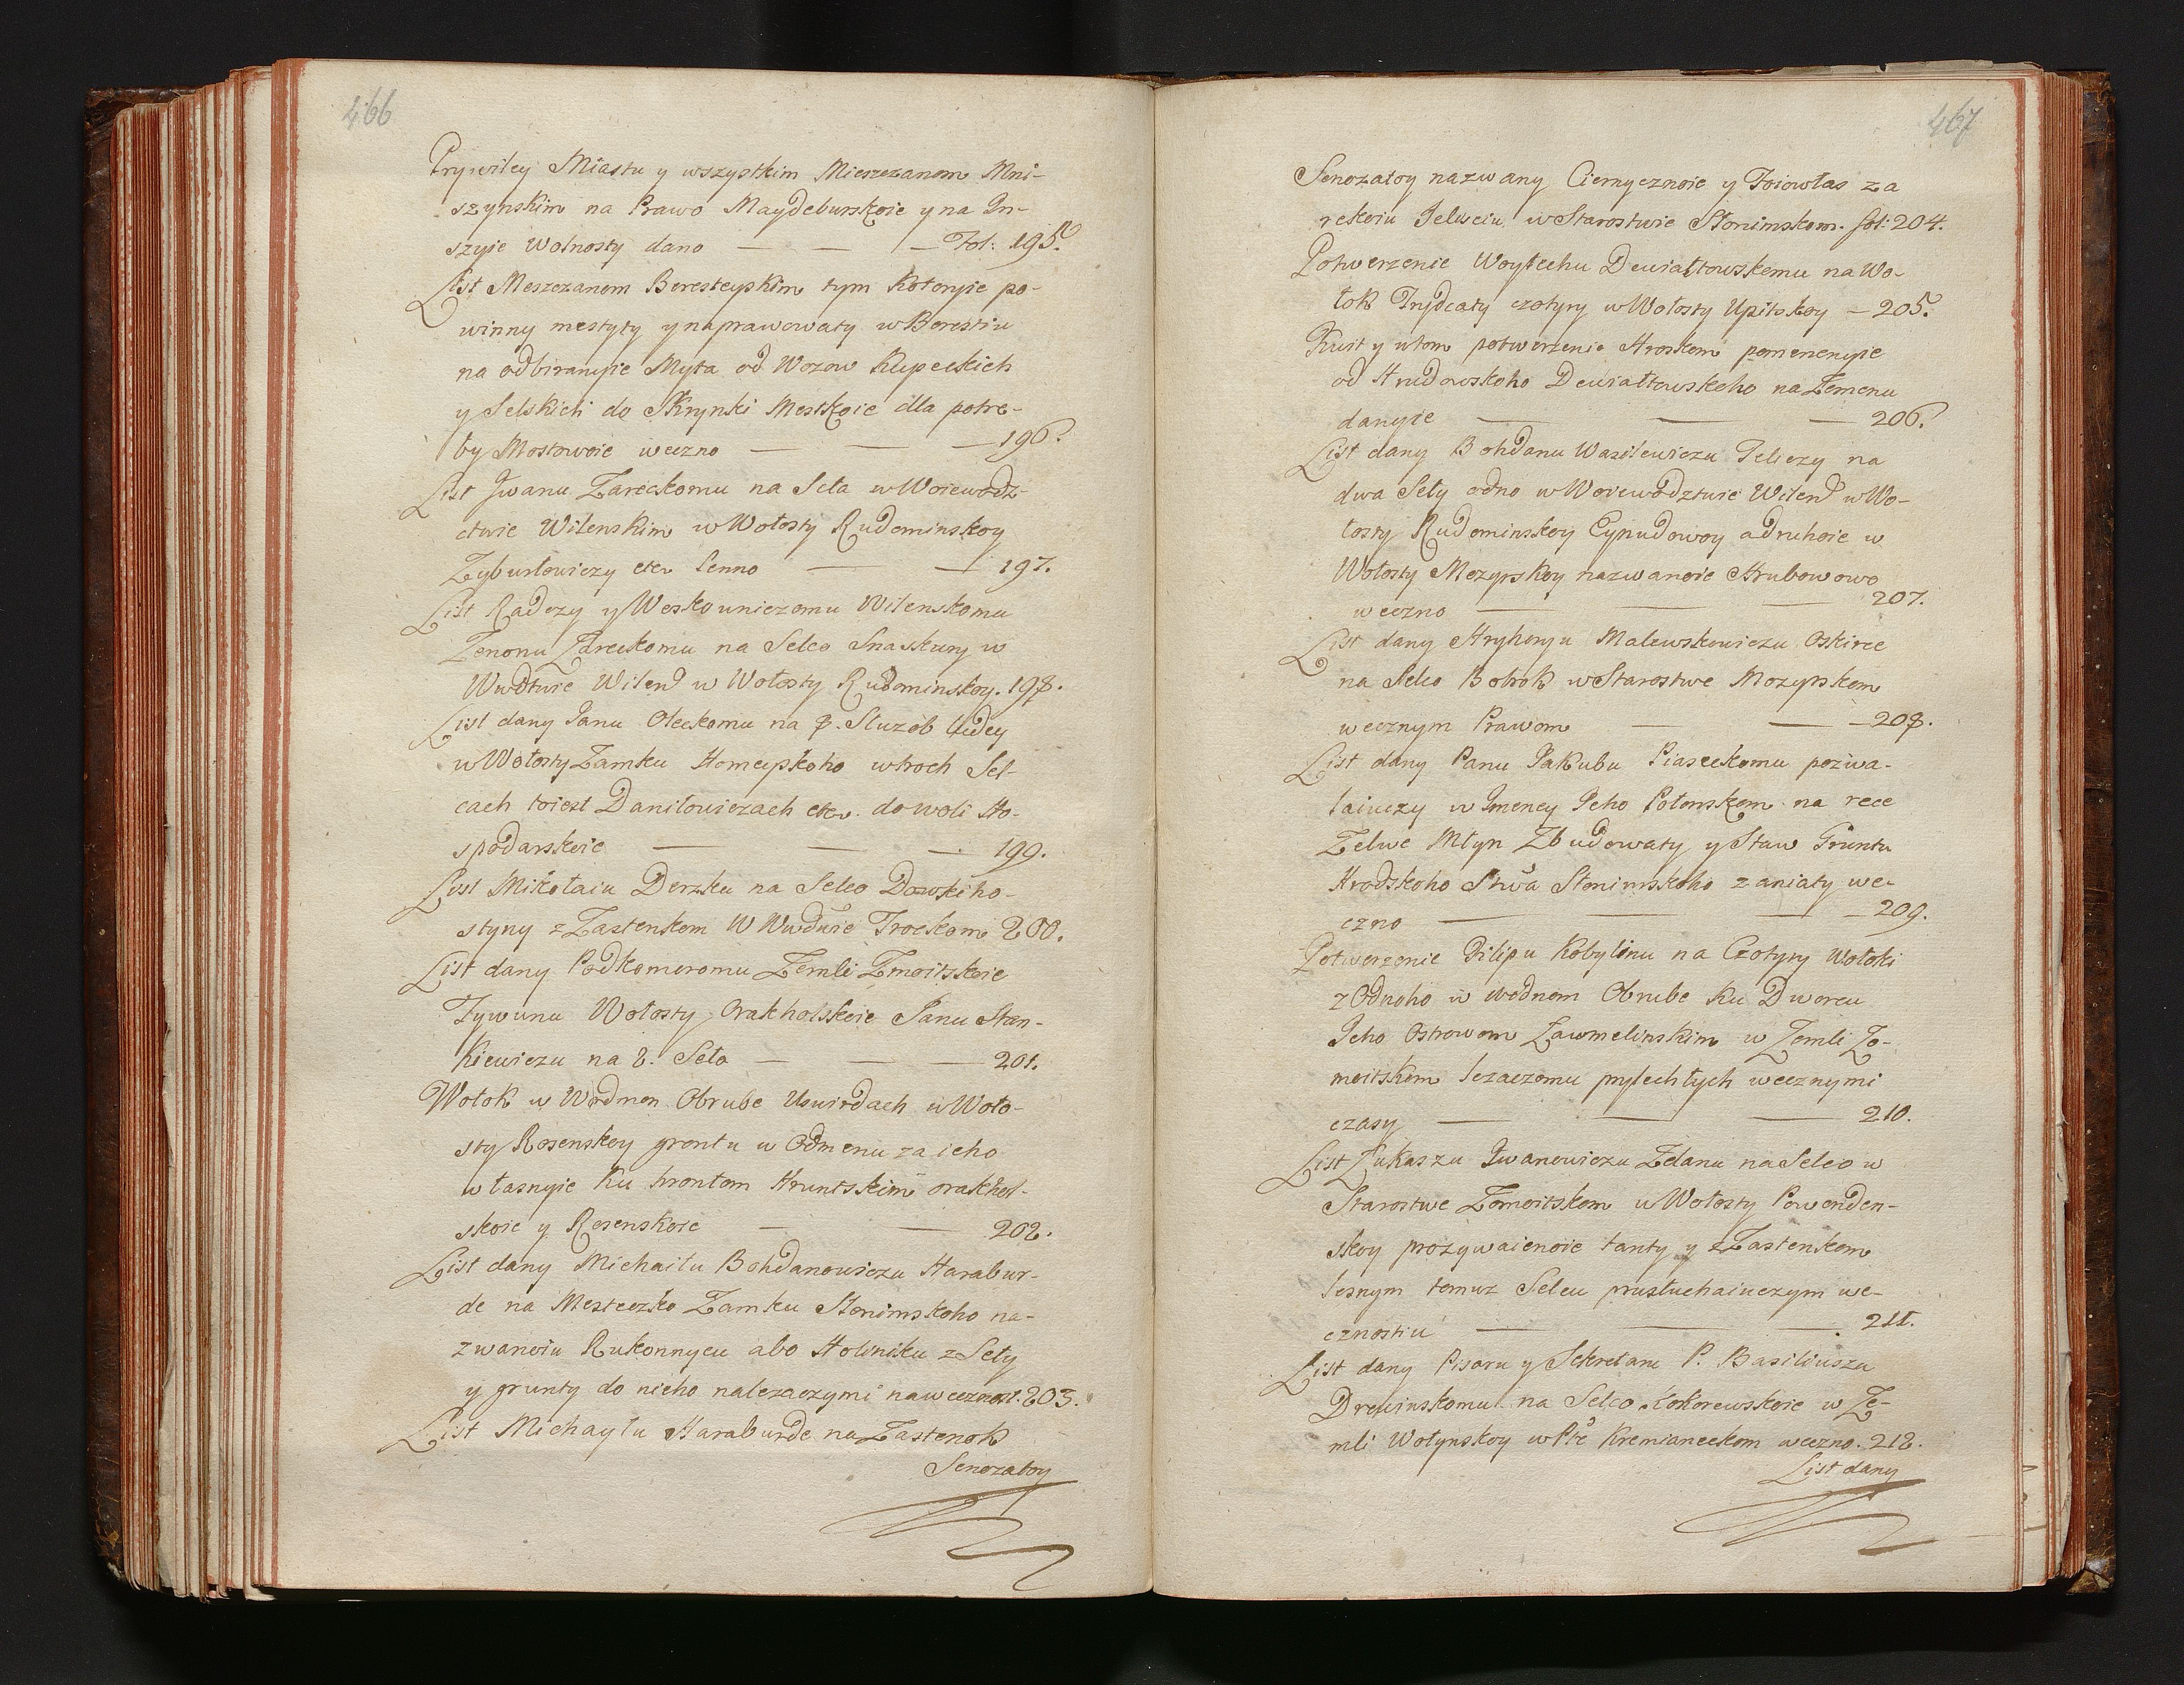 466
Prywiley Miastu y wszystkim Mieszczanom Mni-
szynskim na Prawo Maydeburskoie y na In-
szyie Wolnosty dano — — — Fol: 195.
List Meszczanom Beresteyskim tym Kotoryie po-
winny mestyty y naprawowaty w Berestiu
na odbiranyie Myta od Wozow Kupeckich
y Selskich do Skrynki Mestskoie dla potre-
by Mostowoie weczno — — — 196.
List Jwanu Zareckomu na Sela w Woiewodz-
ctwie Wilenskim w Wołosty Rudominskoy
Zyburtowiczy etc. Senno — — 197.
List Radczy y Weskouniczomu Wilenskomu
Zenonu Zareckomu na Selco Snaskury w
Wwdtwie Wilen w Wołosty Rudominskoy. 198.
List dany Janu Oleckomu na 8. Sluzob Ludey
w Wołosty Zamku Homeyskoho w troch Sel-
cach toiest Daniłowiczach etc. do woli Ho-
spodarskoie — — — 199.
List Mikołaiu Derzku na Selco Dowskiho-
styny z Zastenkom W Wwdwie Trockom 200.
List dany Podkomoromu Zemli Zmoitskoie
Tywunu Wołosty Orakholskoie Janu Stan-
Kiewiczu na 2. Seło — — — 201.
Wołok w Wodmon Obrube Uswirdach w Woło-
sty Rosenskoy grontu w Odmenu za ieho
własnyie Ku hrontom Hruntskim orakhol-
skoie y Rosenskoie — — 202.
List dany Michaiłu Bohdanowiczu Harabur-
de na Mesteczko Zamku Słonimskoho na-
zwanoiu Rukonnycu abo Holoniku z Seły
y grunty do nieho nalezaczymi na wecznost. 203.
List Michayłu Haraburde na Zastenok
Senozatoy
467
Senozatoy nazwany Ciernycznoie y Foiowłas za
rekoiu Selweiu w Starostwie Słonimskom. fol: 204.
Potwerzenie Woytechu Dewiałtowskemu na Wo-
łok Trydcaty czotyry w Wołosty Upitskoy — 205.
Kwit y utom potwerzenie Hroskom pomenenyie
od Hrudowskoho Dewiałtowskoho na Zemenu
danyie — — — 206.
List dany Bohdanu Wasilewiczu Jeliczy na
dwa Seły odno w Woiewodztwie Wilen w Wo-
łosty Rudominskoy Cynudowoy a druhoie w
Wołosty Mozyrskoy nazwanoie Hrubowowo
weczno — — — 207.
List dany Hryhoryu Malewskowiczu Oskirce
na Selco Botrok w Starostwe Mozyrskom
wecznym Prawom — — — 208.
List dany Panu Jakubu Piaseckomu pozwa-
laiuczy w Jmeney Jeho Połonskom na rece
Zelwe Młyn Zbudowaty y Staw Gruntu
Hrodskoho Stwa Słonimskoho zaniaty we-
czno — — — 209.
Potwerzenie Filipu Kobylinu na Czotyry Wołoki
z Odnoho w wodnom Obrube Ku Dworcu
Jeho Ostrowom Zawmelinskim w Zemli Zo-
moitskom lezaczomu prylechłych wecznymi
czasy — — — 210.
List Łukaszu Jwanowiczu Zdanu na Selco w
Starostwe Zomoitskom w Wołosty Powonden-
skoy prozywaienoie Łanty y z Zastenkom
lesnym temuz Selcu prusłuchaiuczym we-
cznostiu — — — 211.
List dany Pisaru y Sekretaru P. Basiliuszu
Drewinskomu na Selco Kokorewskoie w Ze-
mli Wołynskoy w Pte Kremianeckom weczno. 212.
List dany